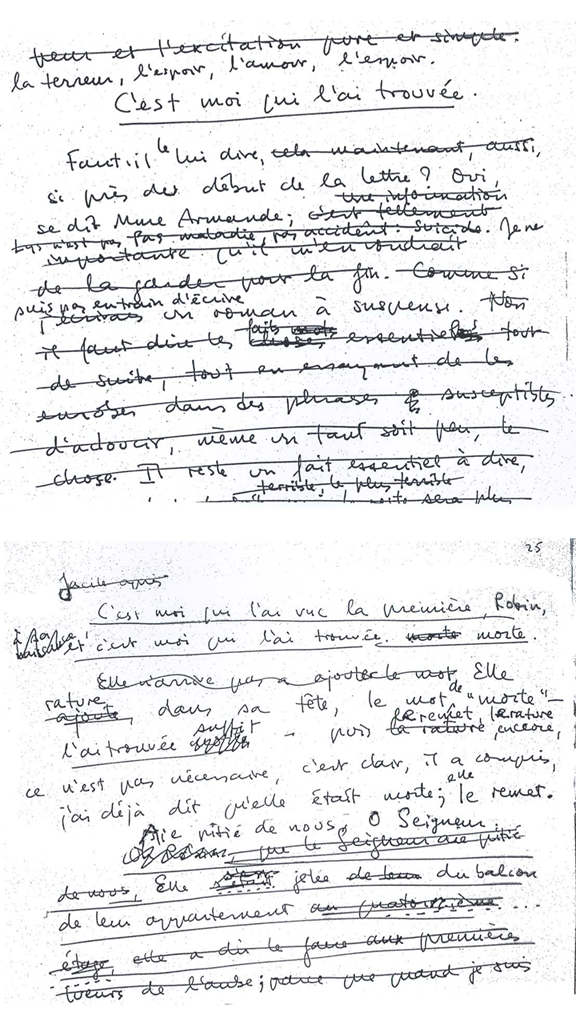 peur et l'excitation pure et simple.
la terreur, l'espoir, l'amour, l'espoir.
C'est moi qui l'ai trouvée.
Faut-il le lui dire, cela maintenant, aussi,
si près du début de la lettre? Oui,
une information
se dit Mme Armande; c'est tellement
pas maladie, pas accident: suicide. Je ne
importante qu'il m'en voudrait
de la garder pour la fin. Comme si
suis pas en train d'écrire
j'écrivais un roman à suspense. Non
faits mots
il faut dire les choses essentielles tout
de suite, tout en essayant de les
enrober dans des phrases susceptibles
d'adoucir, même un tant soit peu, la
chose. Il reste un fait essentiel à dire,
terrible, le plus terrible
sera plus
25
facile après
C'est moi qui l'ai vue la première, Robin,
et c'est moi qui l'ai trouvée. morte morte.
Elle n'arrive pas à ajouter le mot. Elle
rature
ajoute, dans sa tête, le mot de "morte" –
suffit le remet, le rature
l'ai trouvée – puis la rature encore,
ce n'est pas nécessaire, c'est clair, il a compris,
j'ai déjà dit qu'elle était morte; elle le remet.
Aie pitié de nous, O Seigneur.
que le Seigneur aie pitié
de nous, Elle s'était jetée de leur du balcon
de leur appartement au quatorzième ...
étage, elle a dû le faire aux premières
lueurs de l'aube; parce que quand je suis